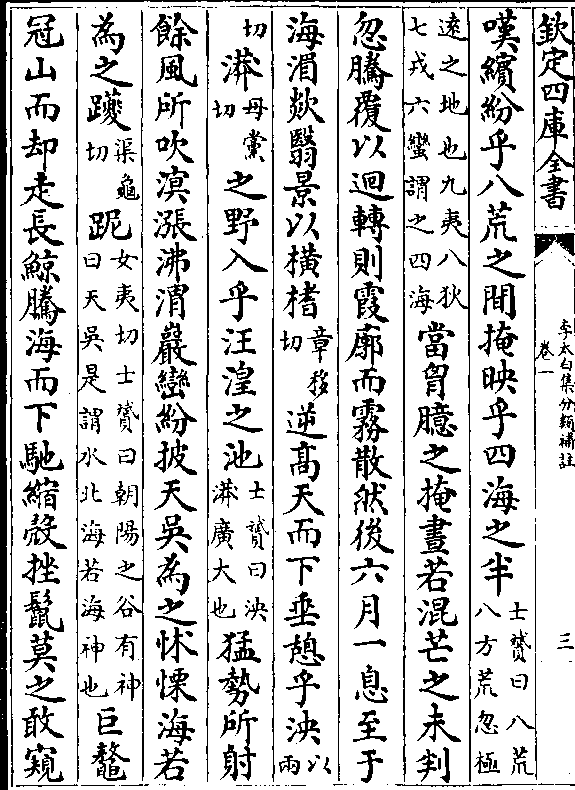 欽定四庫全書
李太白集分類補註
卷一
三
嘆繽紛乎八荒之間掩映乎四海之半士贇曰八荒八方荒忽極
遠之地也九夷八狄七戎六蠻謂之四海當胷臆之掩晝若混芒之未判
忽騰覆以迴轉則霞廓而霧散然後六月一息至于
海湄欻翳景以橫㨖章移切逆髙天而下垂憩乎泱以兩
切漭母黨切之野入乎汪湟之池士贇曰泱漭廣大也猛勢所射
餘風所吹溟漲沸渭巖巒紛披天吳為之怵慄海若
為之躨渠龜切跜女夷切士贇曰朝陽之谷有神曰天吳是謂水北海若海神也巨鼇
冠山而却走長鯨騰海而下馳縮殻挫鬛莫之敢窺